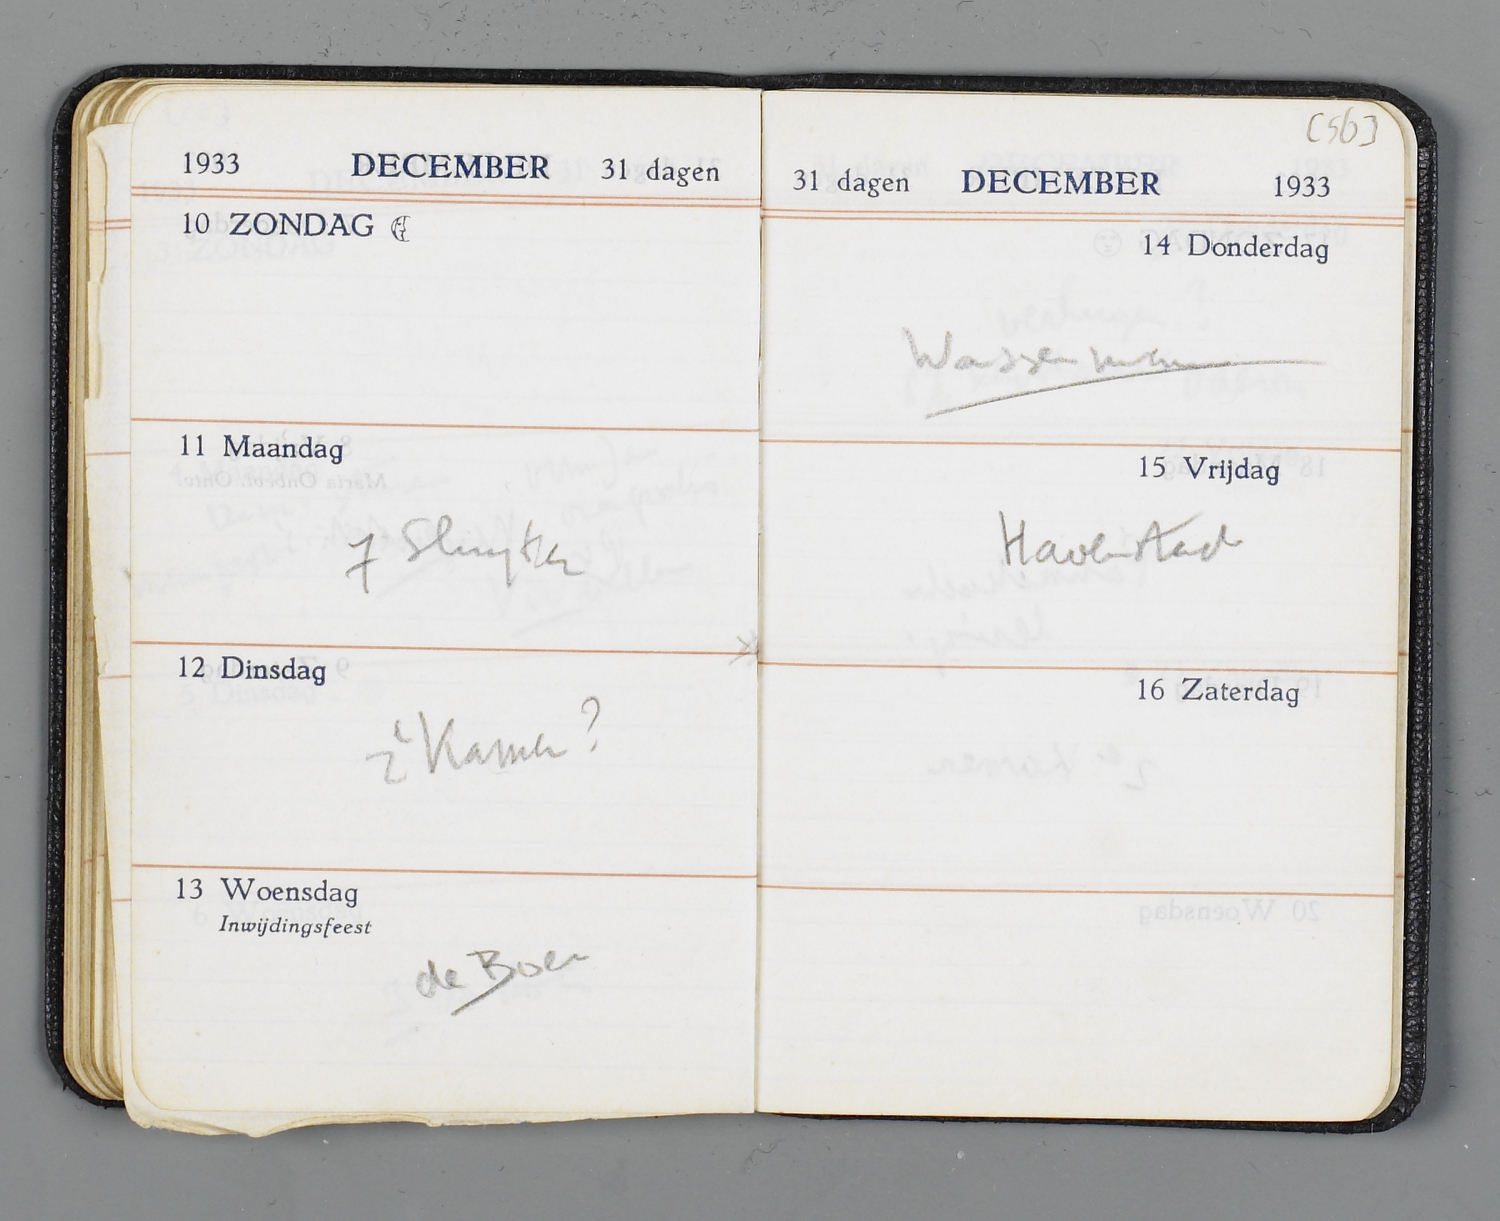 1933 DECEMBER 31 dagen
10 ZONDAG
11 Maandag
7 Sluyter
12 Dinsdag
2e Kamer?
13 Woensdag
Inwijdingsfeest
de Boer
[56]
31 dagen DECEMBER 1933
14 Donderdag
Wasserman
15 Vrijdag
Havenstad
16 Zaterdag